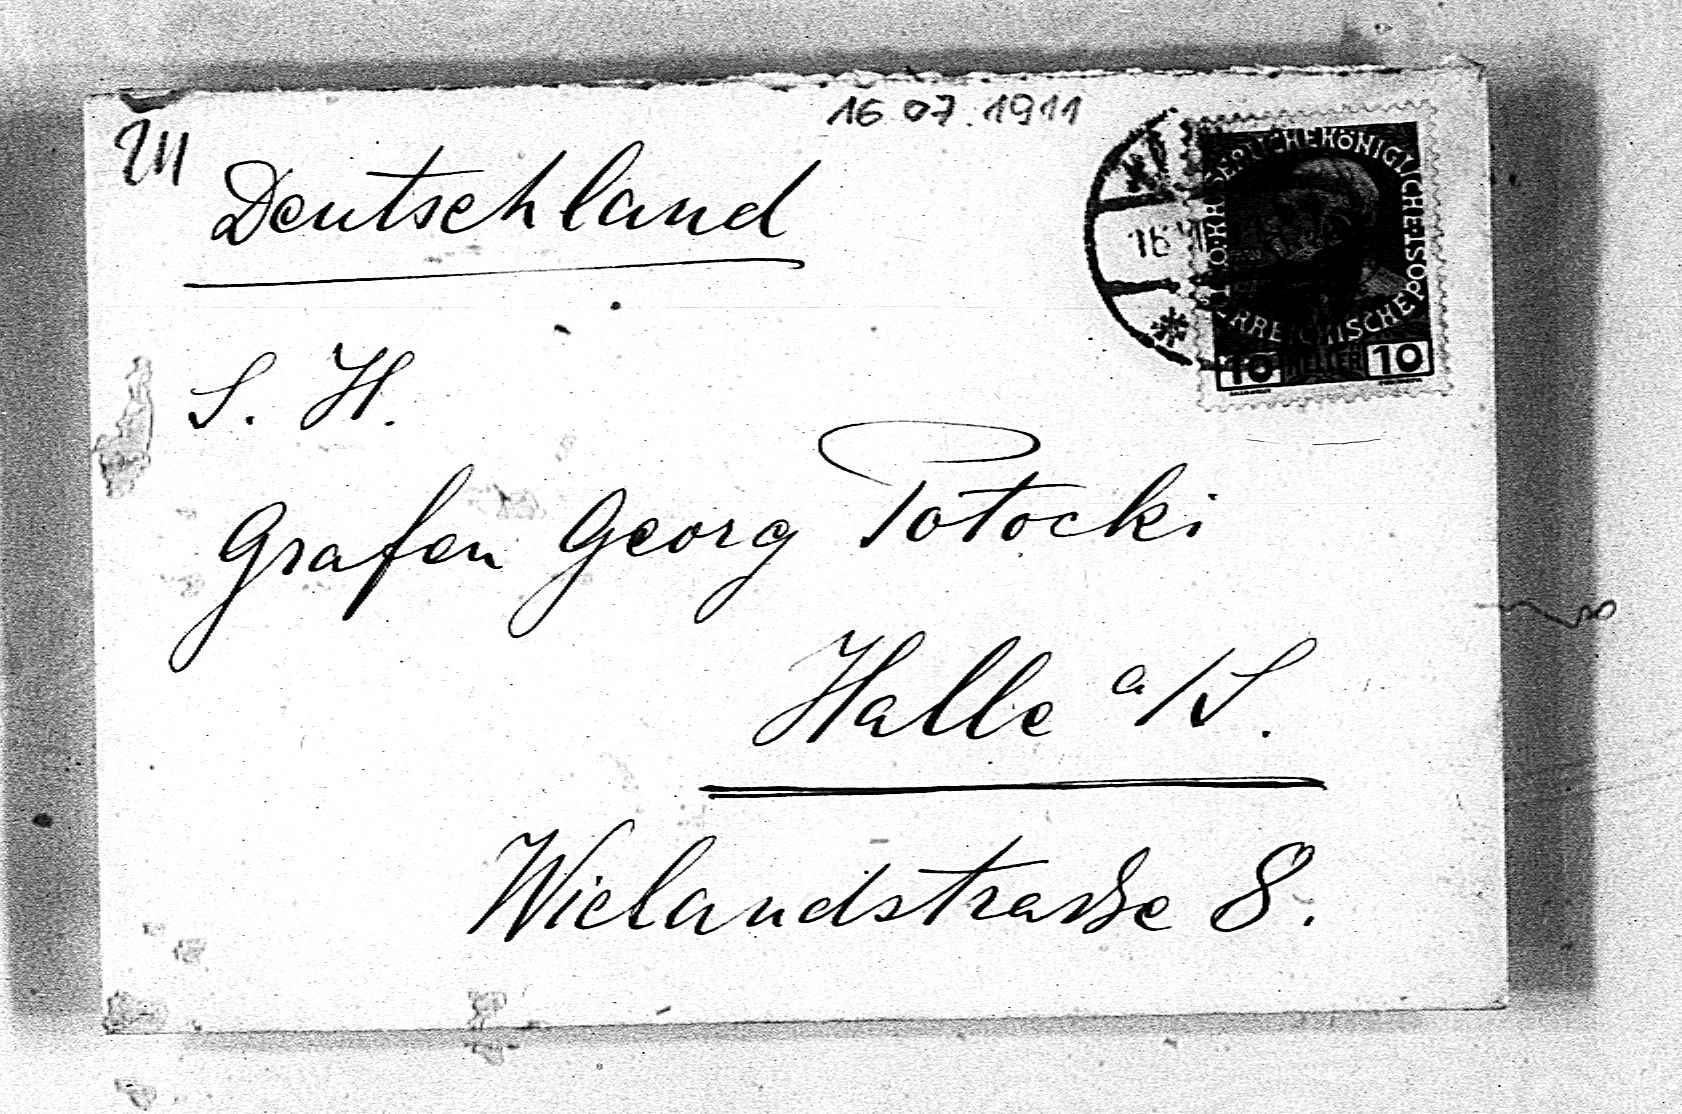 16 07.1911
Deutschland
S. H.
Grafen Georg Potocki
Halle a/S.
Wielandstraße 8.
16 VII
KAISERLICHE KÖNIGLICHE
ÖSTERREICHISCHE POST
10 HELLER 10